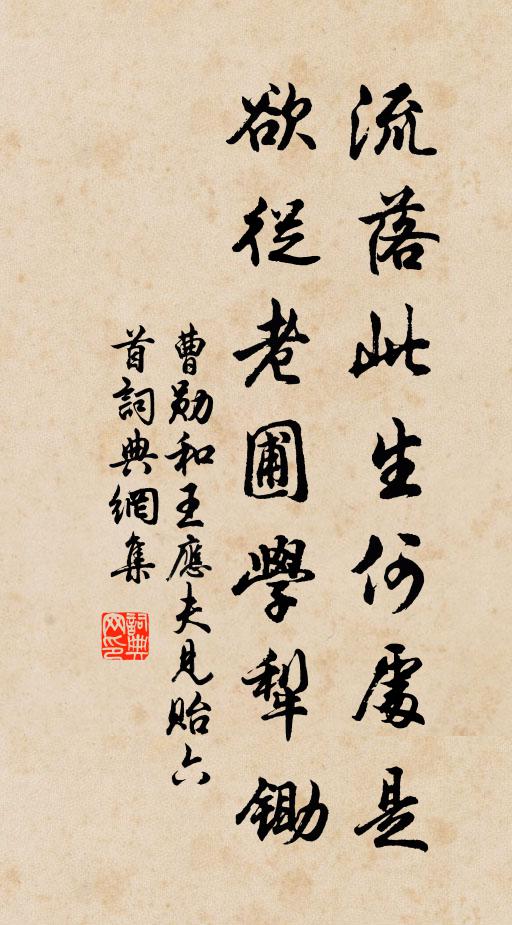 流落此生何處是
欲從老圃學犁鋤
曹勛和王應夫見貽六
首詞典網集
詞典
网印